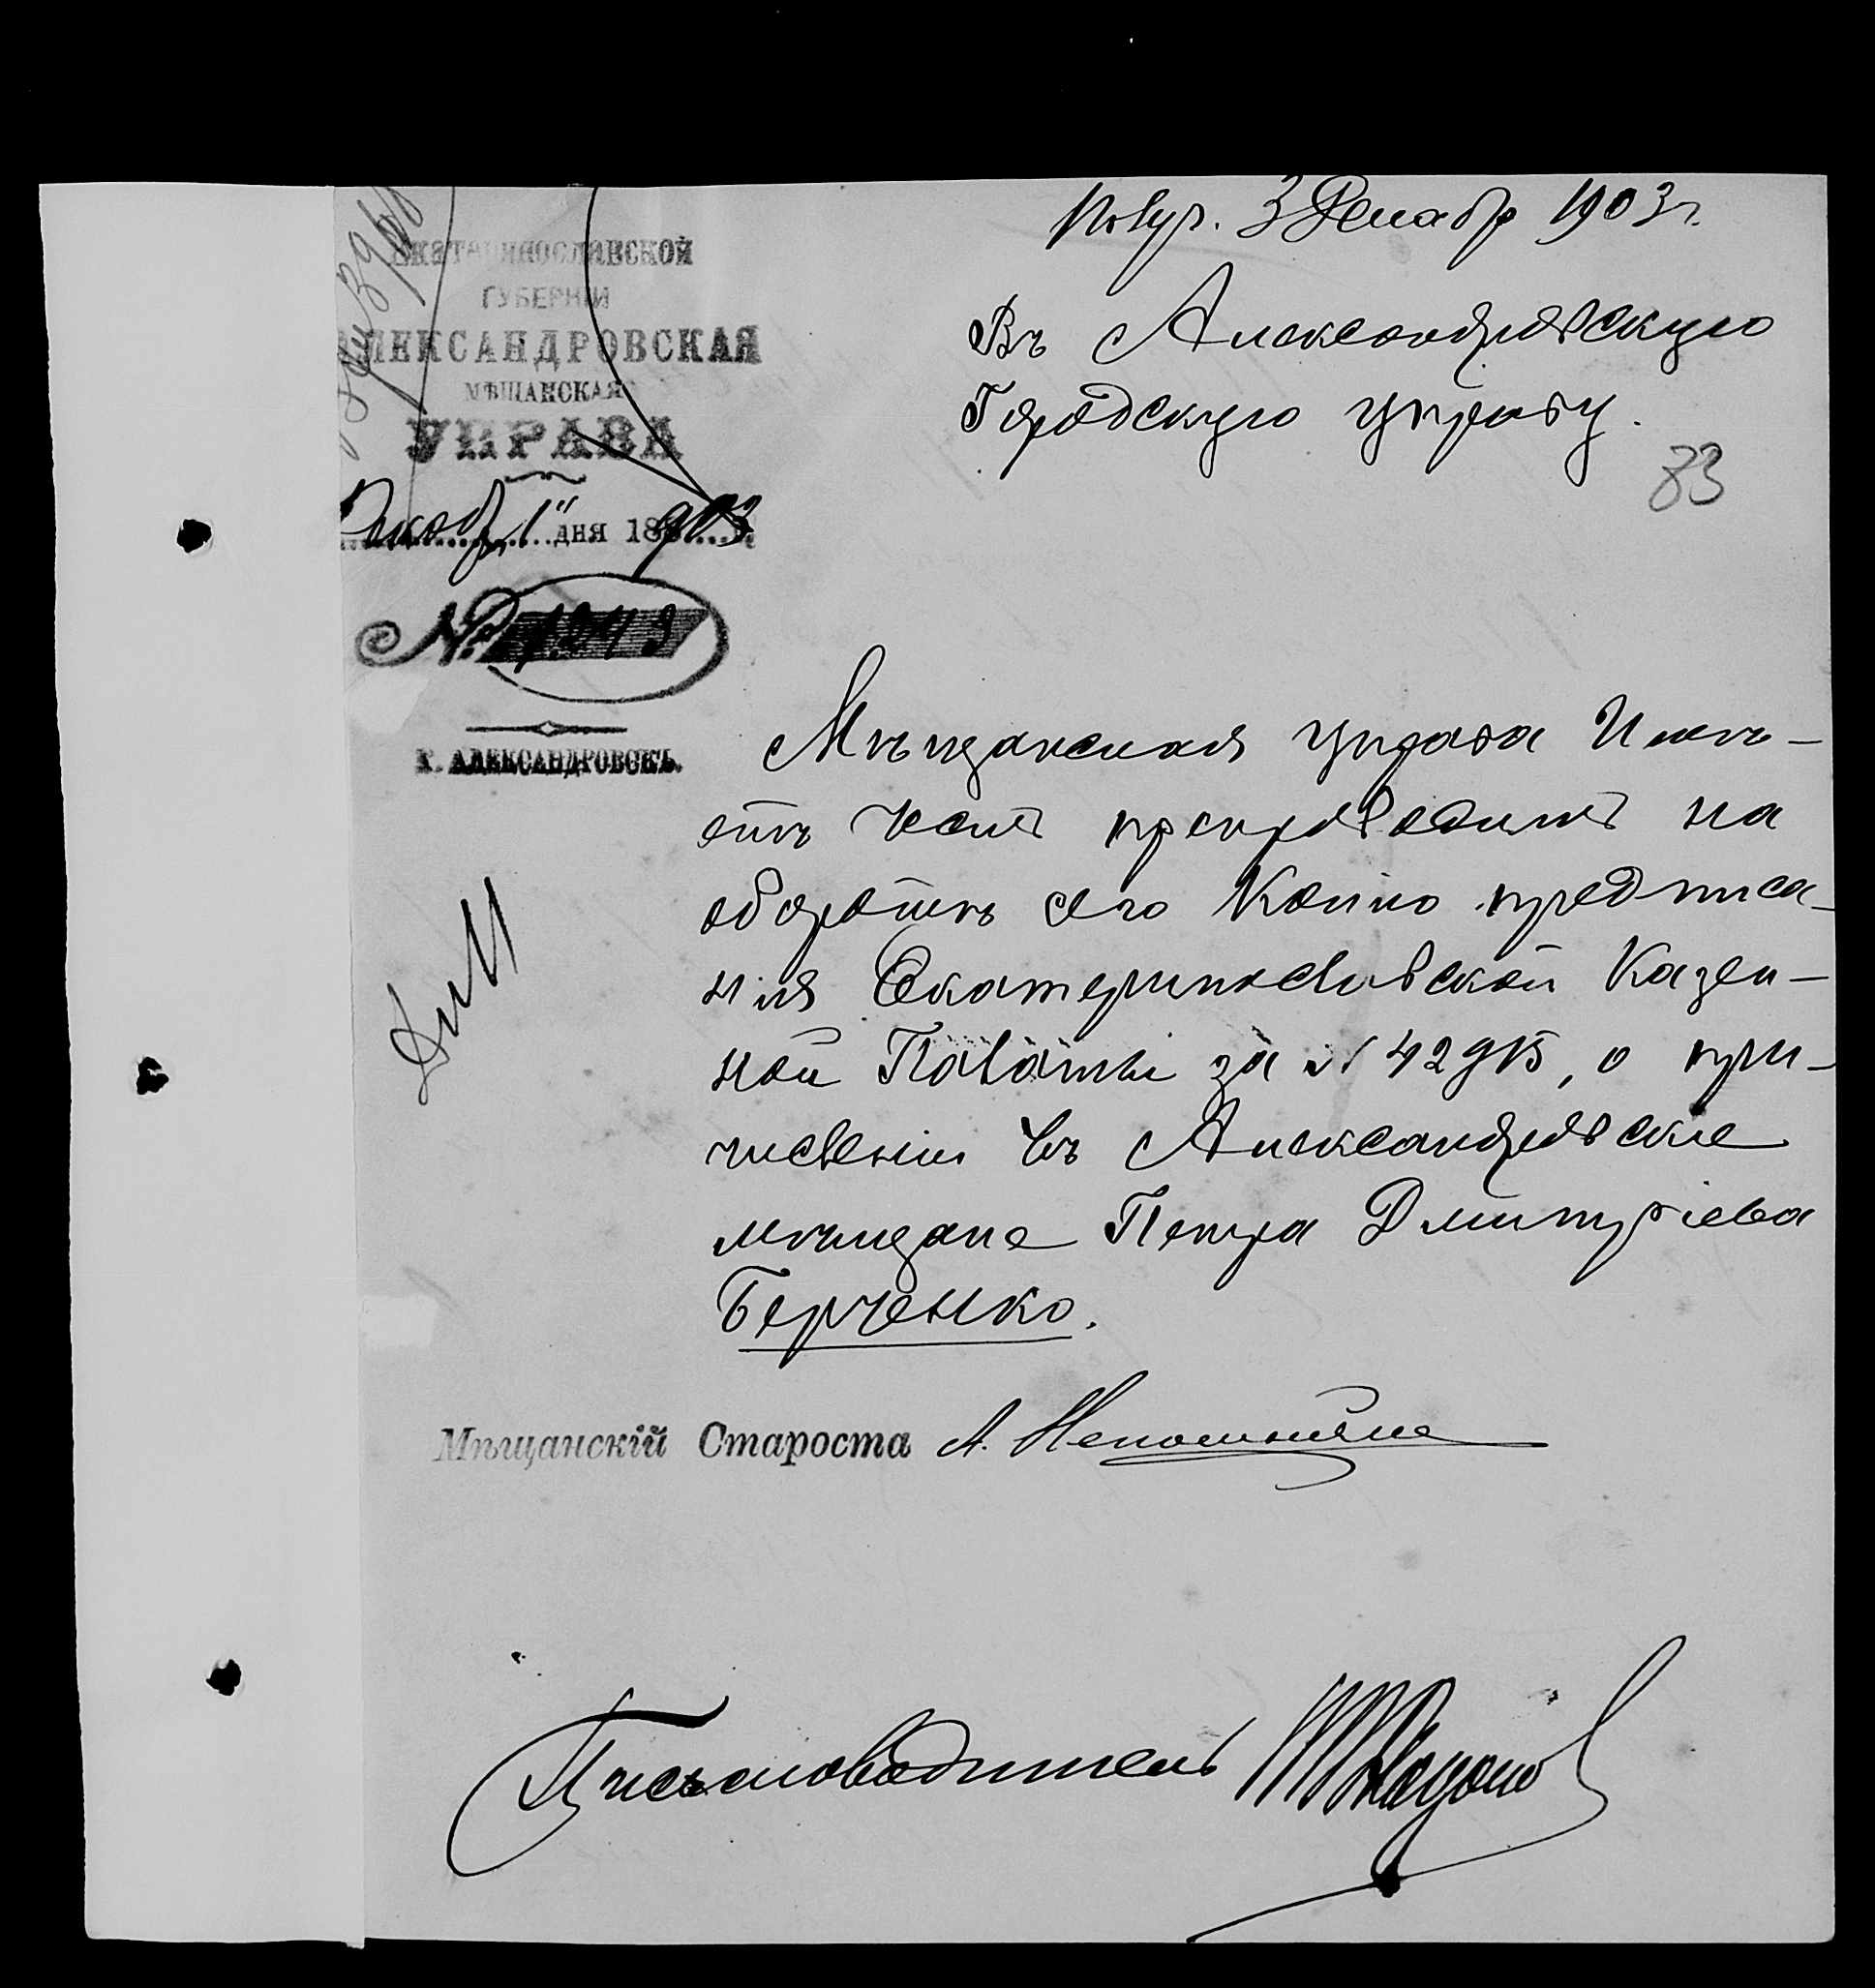 Получ. 3 Декабр 1903 г.
ЕКАТЕРИНОСЛАВСКОЙ
ГУБЕРНІИ
АЛЕКСАНДРОВСКАЯ
МѢЩАНСКАЯ
УПРАВА
Декабр. 1" дня 1903
№ 1249
Г. АЛЕКСАНДРОВСКЪ.
Въ Александровскую
Городскую управу.
83
Мѣщанская управа Имѣ-
етъ честь препроводить на
оборотѣ сего Копію предписа-
нія Екатеринославской Казен-
ной Палаты за № 42915, о при-
численіи въ Александровскіе
мѣщане Петра Дмитріева
Берченко.
Мѣщанскій Староста А.
Письмоводитель